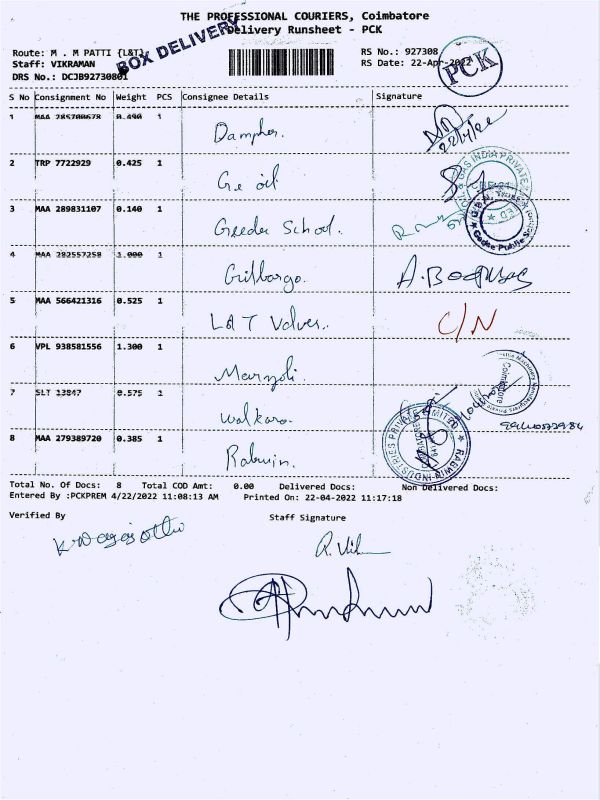 THE PROFESSIONAL COURIERS, Coimbatore
Delivery Runsheet - PCK
BOX DELIVERY
Route: M . M PATTI {L&T} RS No.: 927308
Staff: VIKRAMAN RS Date: 22-Apr-2022
PCK
DRS No.: DCJB92730801
S No Consignment No Weight PCS Consignee Details Signature
1 MAA 285700678 0.490 1 Dampher. 22/4/22
2 TRP 7722929 0.425 1 Ge oil
3 MAA 289831107 0.140 1 Geedee School.
4 MAA 282557258 1.000 1 Gilbargo.
5 MAA 566421316 0.525 1 L&T Valves. C/N
6 VPL 938581556 1.300 1
7 SLT 13847 0.575 1 walkaro.
8 MAA 279389720 0.385 1 Rabwin.
RABWIN INDUSTRIES PRIVATE LIMITED
Total No. Of Docs: 8 Total COD Amt: 0.00 Delivered Docs: Non Delivered Docs:
Entered By :PCKPREM 4/22/2022 11:08:13 AM Printed On: 22-04-2022 11:17:18
Verified By Staff Signature